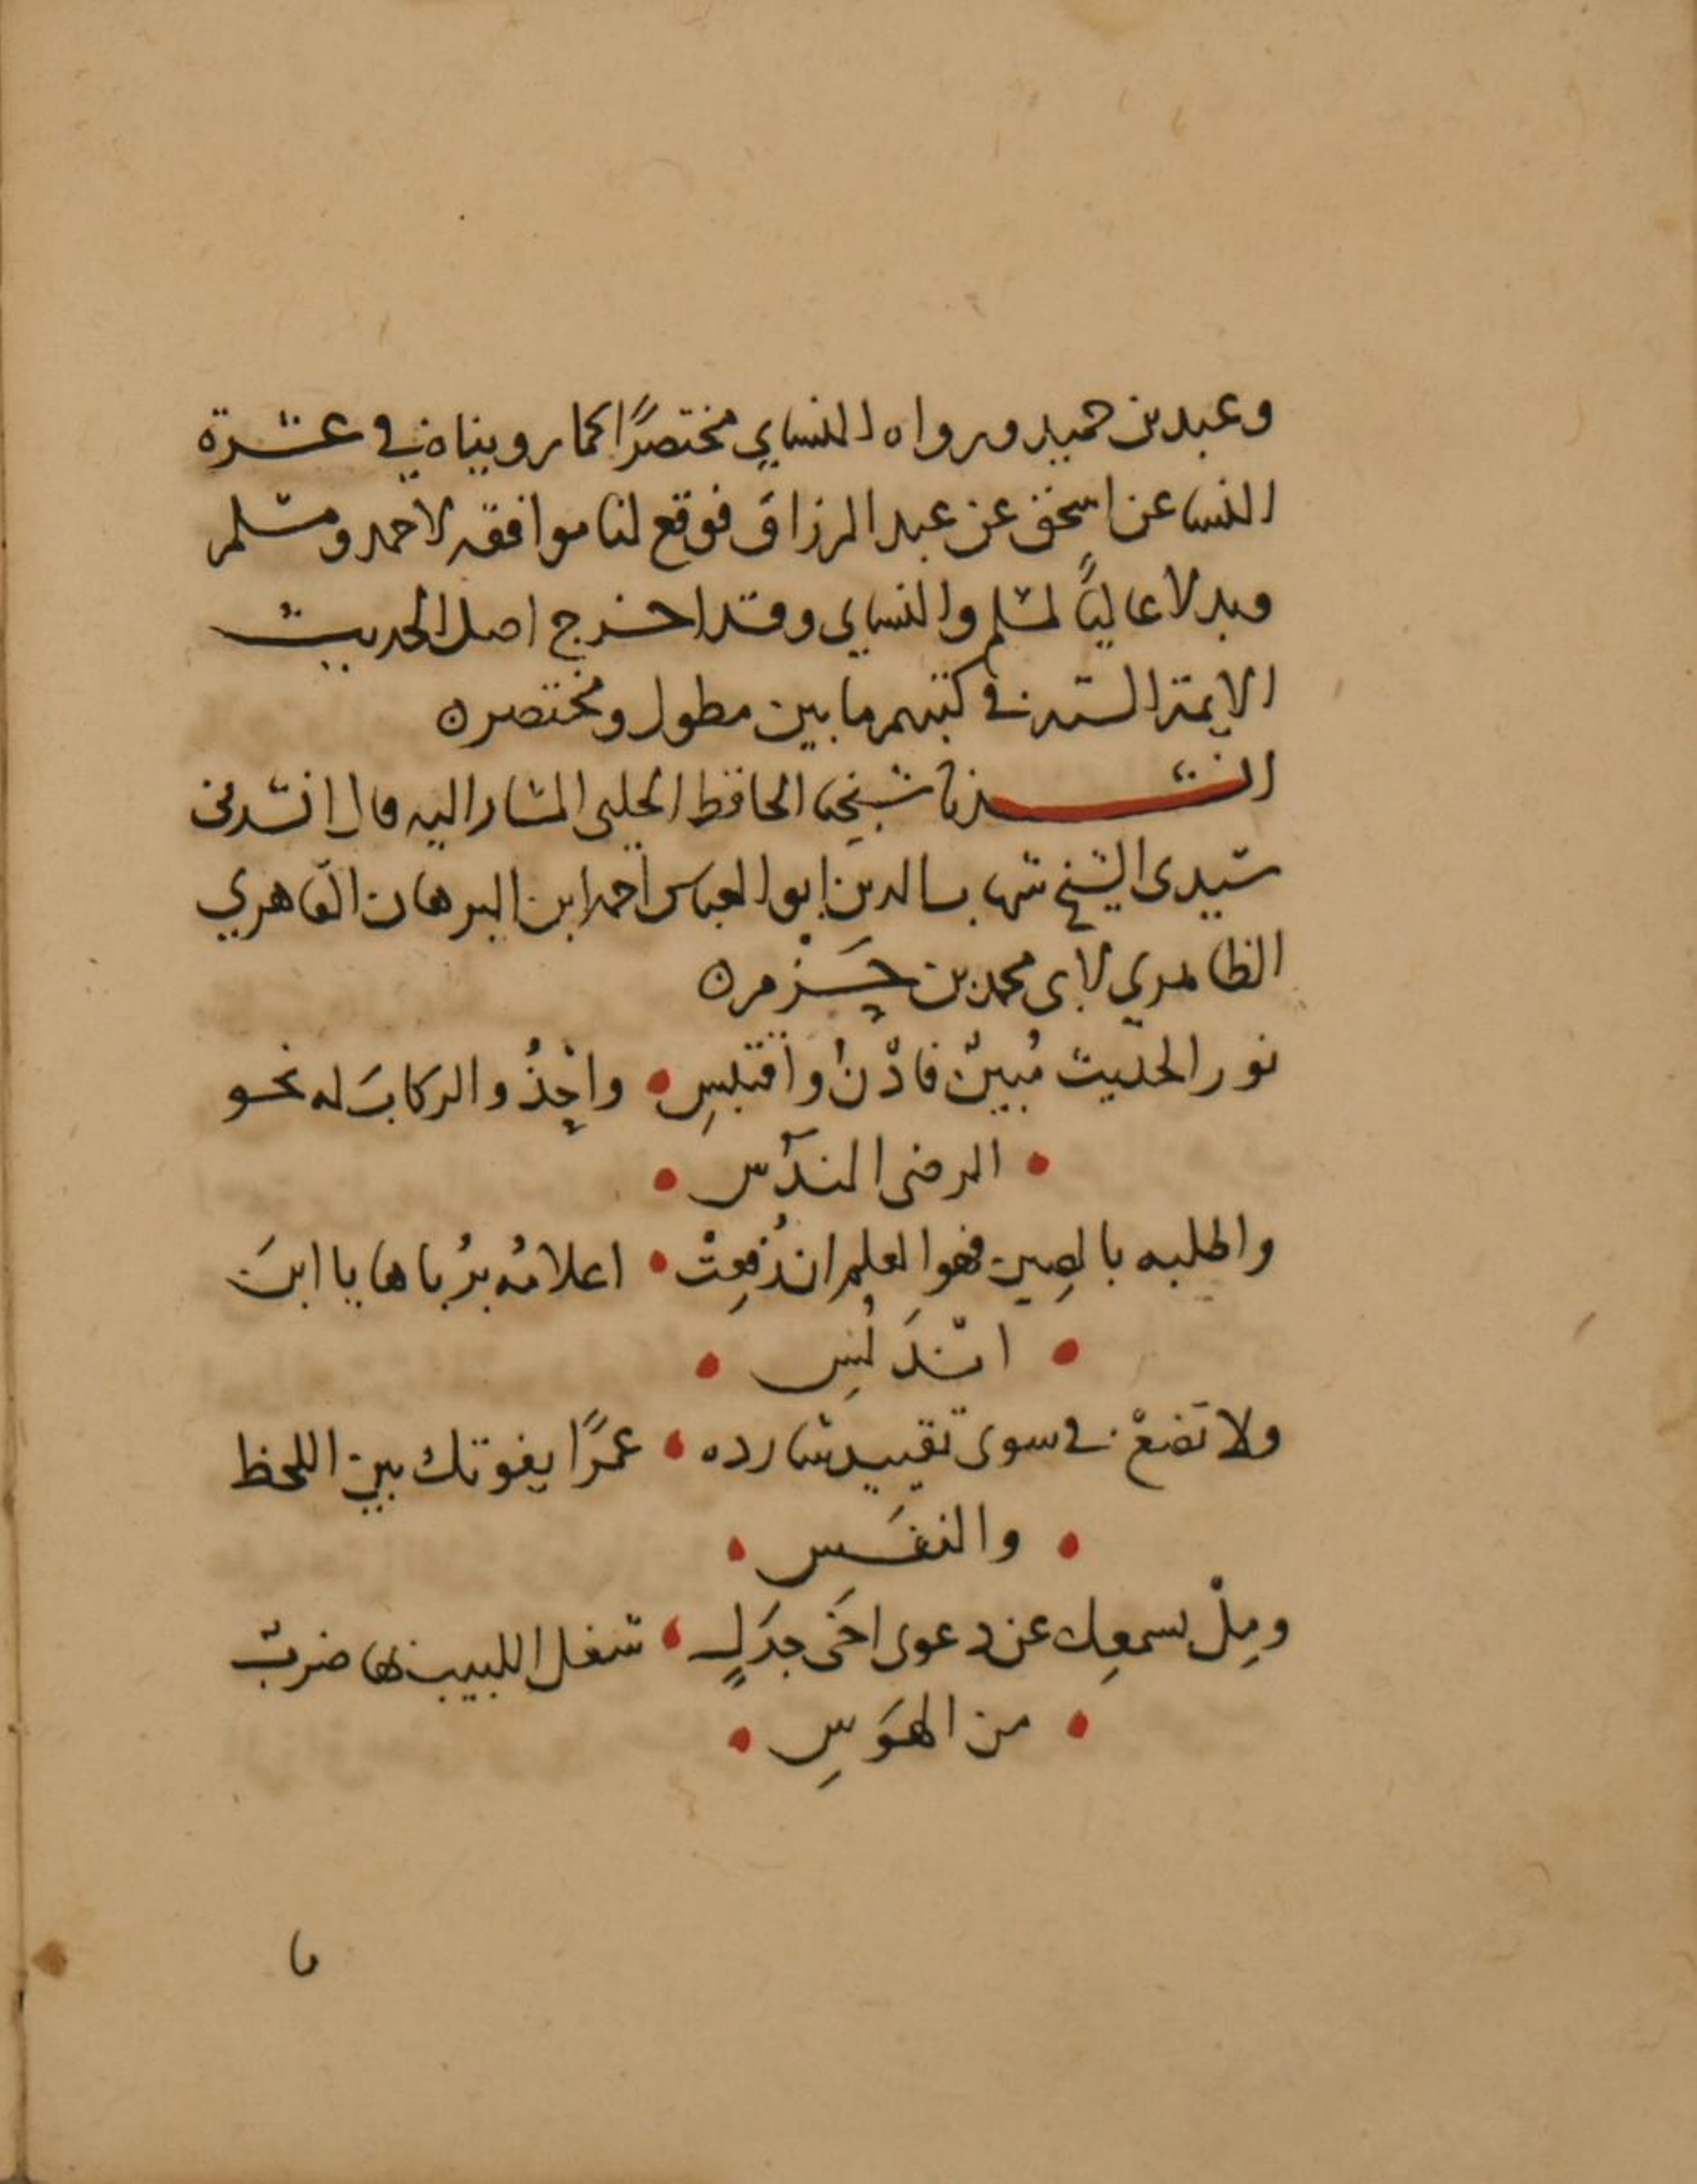 وعبد بن حميد ورواه النساي مختصرًا كما رويناه في عشرة
النسا عن اسحق عن عبد الرزاق فوقع لنا موافقة لاحمد ومسلم
وبدلا عاليًا لمسلم والنساي وقد اخرج اصل الحديث
الايمة الستة في كتبهم ما بين مطول ومختصر ٥
انشدنا شيخنا الحافظ الحلبي المشار اليه قال انشدني
سيدى الشيخ شهاب الدين ابو العباس احمد ابن البرهان القاهري
الظاهري لابى محمد بن حَزْم ٥
نور الحديث مُبينٌ فادْنُ واقتبسِ • واحْذُ والركابَ له نحو
• الرضى الندُس •
واطلبه بالصِين فهو العلم ان رُفِعتْ • اعلامُه برُباها يا ابنَ
• اندَلُسِ •
ولا تضعْ في سوى تقييد شارده • عمرًا يفوتك بين اللحظ
• والنفَس •
ومِلْ بسمعِك عن دعوى اخى جدَلٍ • شغل اللبيب بها ضربٌ
• من الهَوَسِ •